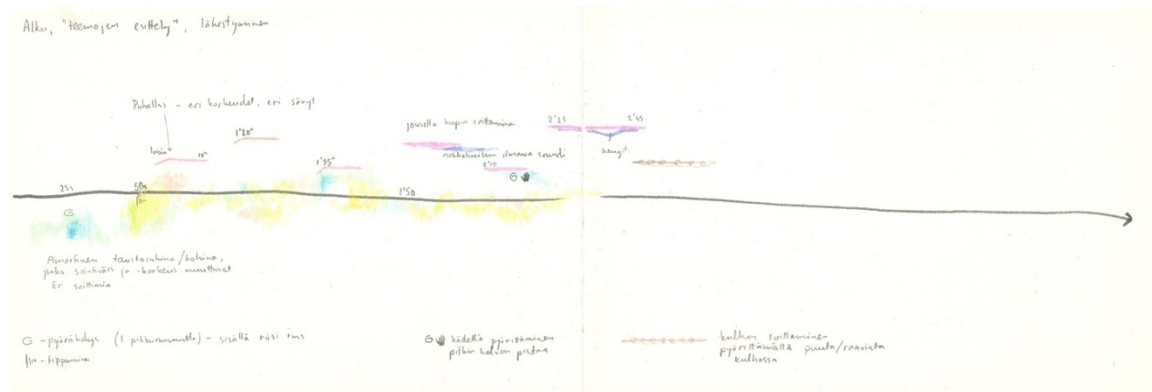 Alku, "teemojen esittely", lähestyminen
Puhallus - eri korkeudet, eri sävyt
1min
10"
1'20"
1'35"
jousella kupin soittaminen
nokkahuilun ilmava soundi
2'10
G
2'25
2'45
hengit.
25s
50s
1'50
G
Amorfinen taustasuhina/kohina,
joka sointiväri ja -korkeus muuttuvat
Eri soittimia
G - pyörähdys (1. pikkurummulla) - sisällä riisi tms
- tippuminen
G kädellä pyörittäminen
pitkin kalvon pintaa
kulhon soittaminen
pyörittämällä puuta/
kulhossa